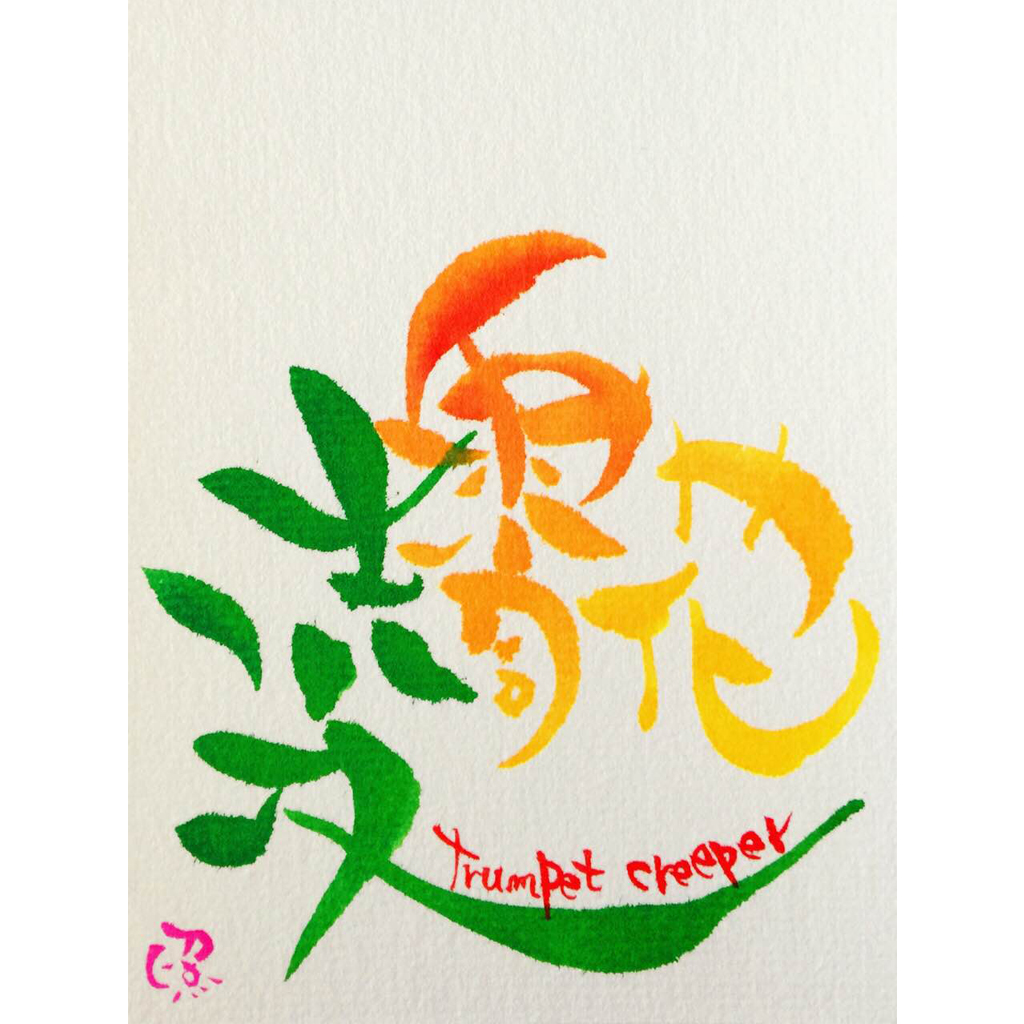 凌霄花
Trumpet creeper